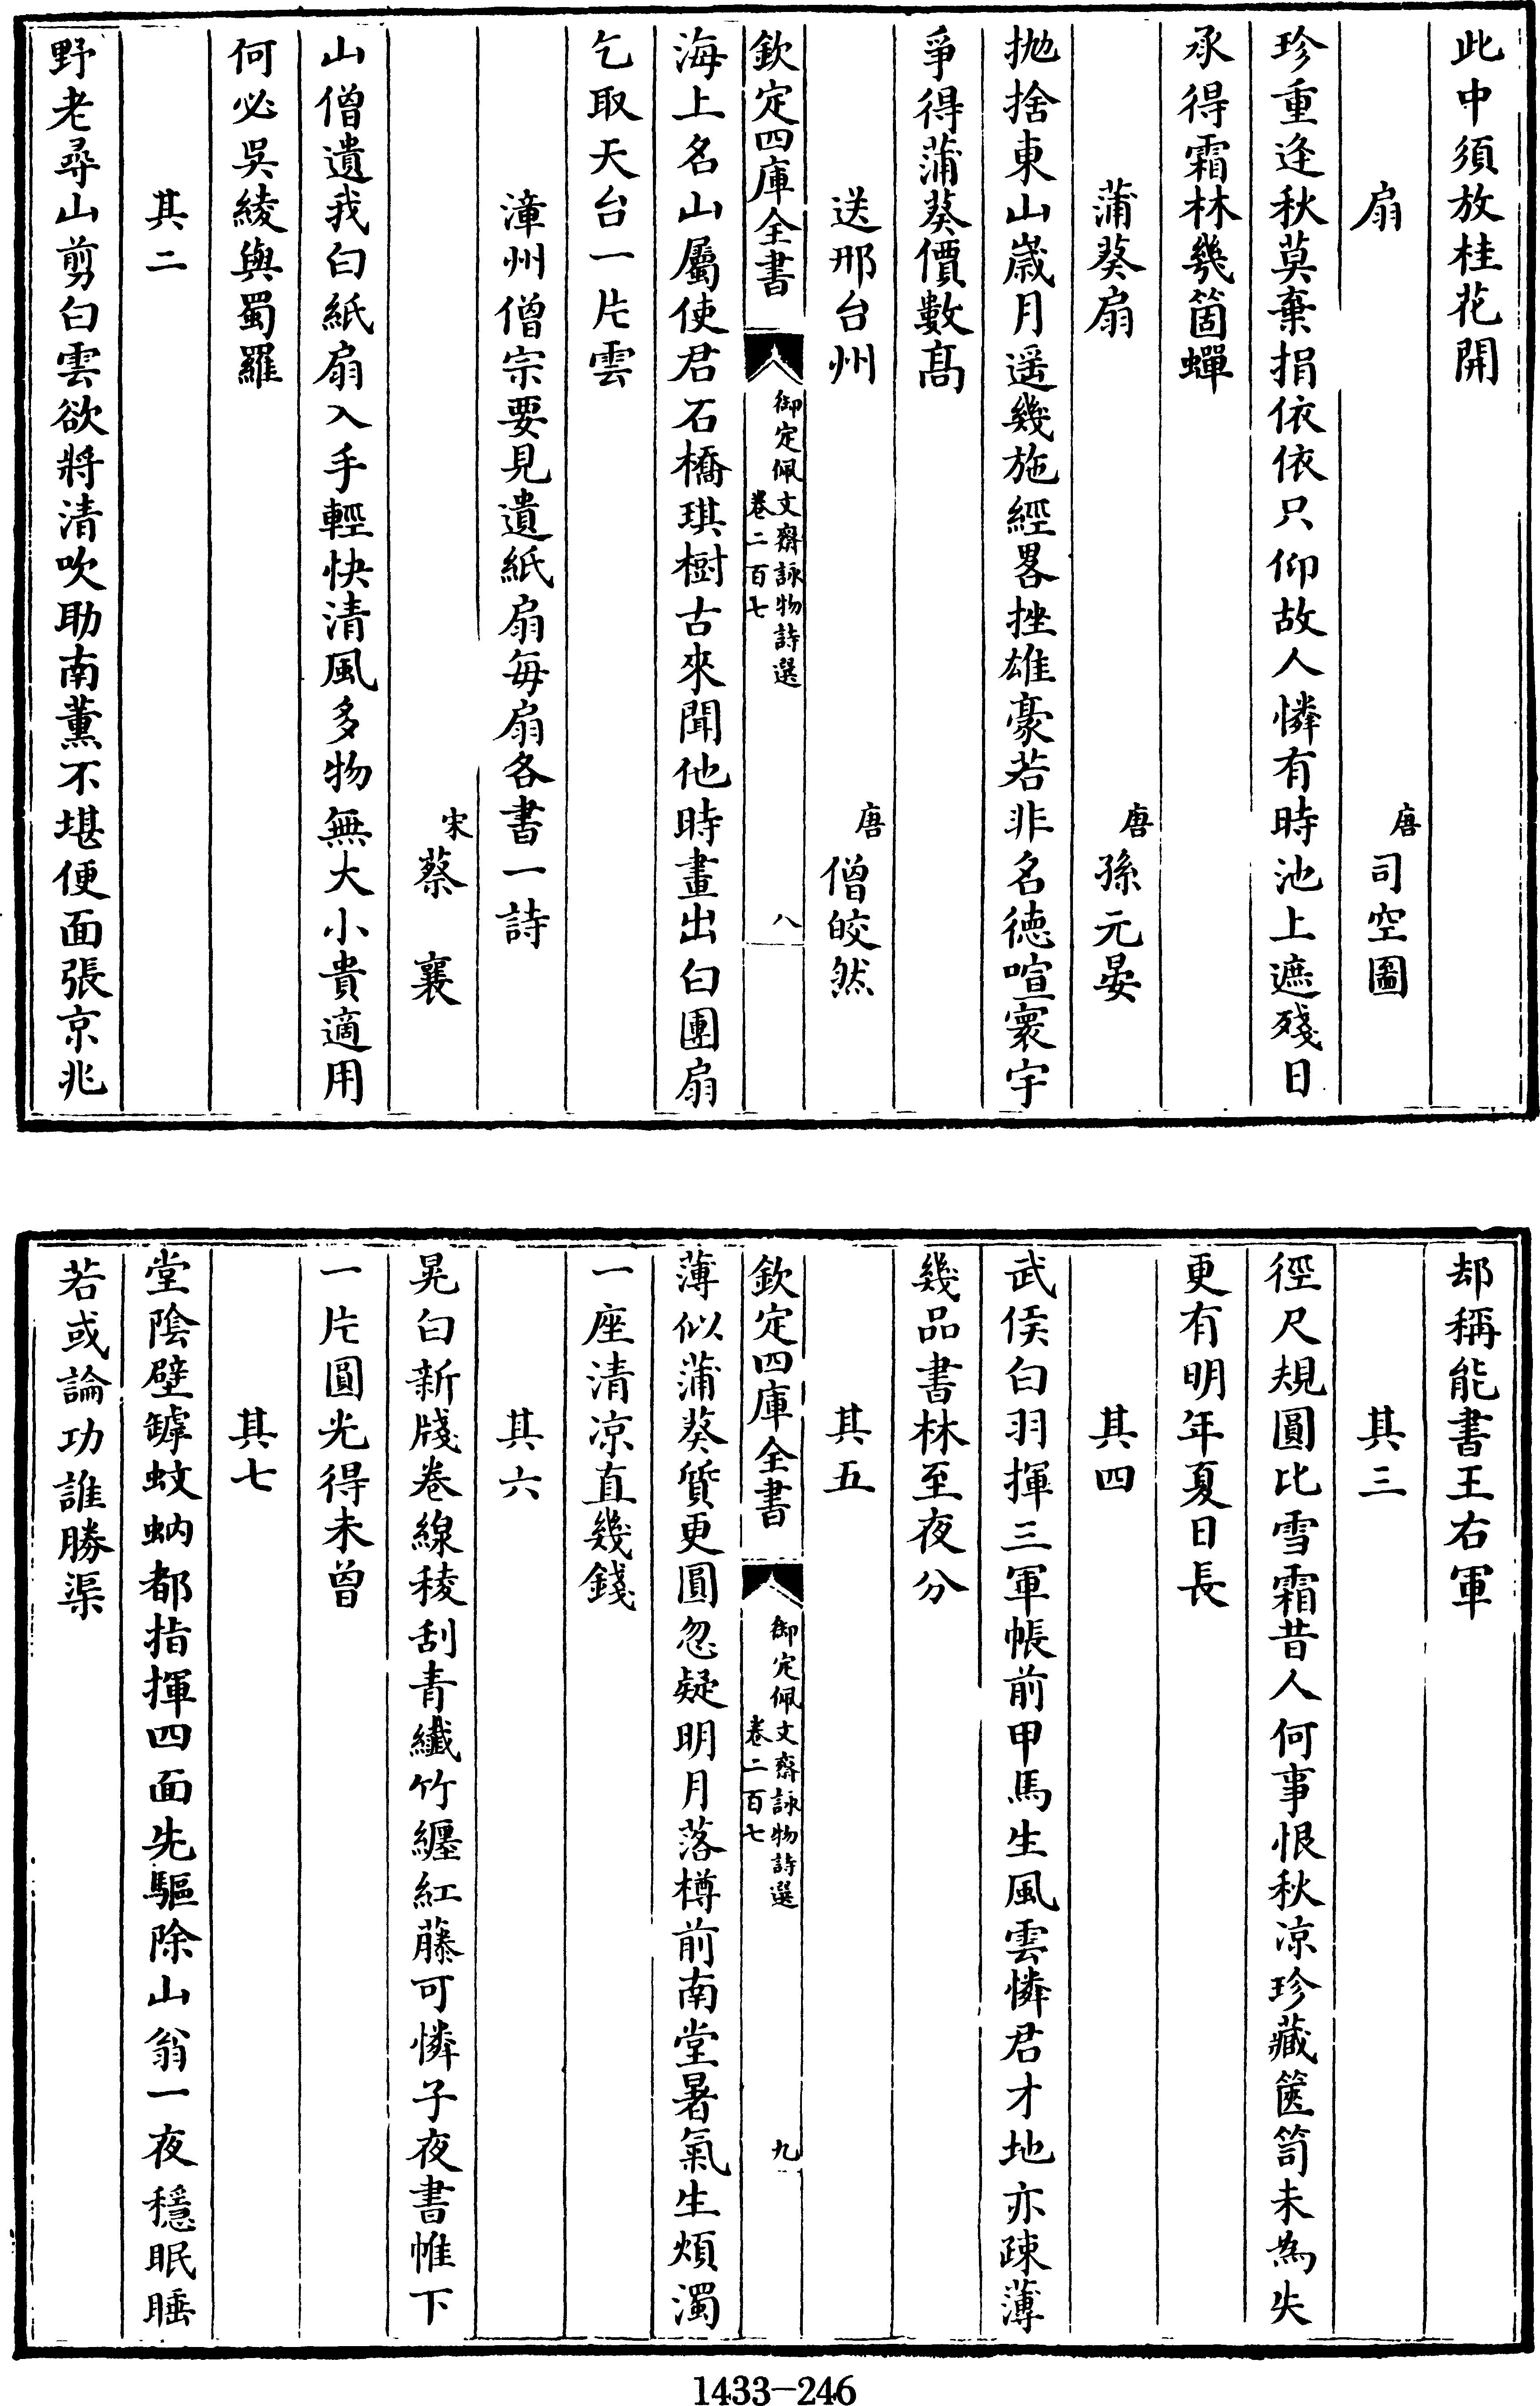 此中須放桂花開
扇 唐司空圖
珍重逢秋莫棄捐依依只仰故人憐有時池上遮殘日
承得霜林幾箇蟬
蒲葵扇 唐孫元晏
拋捨東山歲月遥幾施經畧挫雄豪若非名德喧寰宇
爭得蒲葵價數髙
送邢台州 唐僧皎然
欽定四庫全書 御定佩文齋詠物詩選 卷二百七 八
海上名山屬使君石橋琪樹古來聞他時畫出白團扇
乞取天台一片雲
漳州僧宗要見遺紙扇每扇各書一詩
宋蔡襄
山僧遺我白紙扇入手輕快清風多物無大小貴適用
何必吳綾與蜀羅
其二
野老尋山剪白雲欲將清吹助南薰不堪便面張京兆
却稱能書王右軍
其三
徑尺規圓比雪霜昔人何事恨秋凉珍藏篋笥未為失
更有明年夏日長
其四
武侯白羽揮三軍帳前甲馬生風雲憐君才地亦疎薄
幾品書林至夜分
其五
欽定四庫全書 御定佩文齋詠物詩選 卷二百七 九
薄似蒲葵質更圓忽疑明月落樽前南堂暑氣生煩濁
一座清凉直幾錢
其六
晃白新牋卷線稜刮青纖竹纏紅藤可憐子夜書帷下
一片圓光得未曾
其七
堂陰壁罅蚊蚋都指揮四面先驅除山翁一夜穩眠睡
若或論功誰勝渠
1433-246